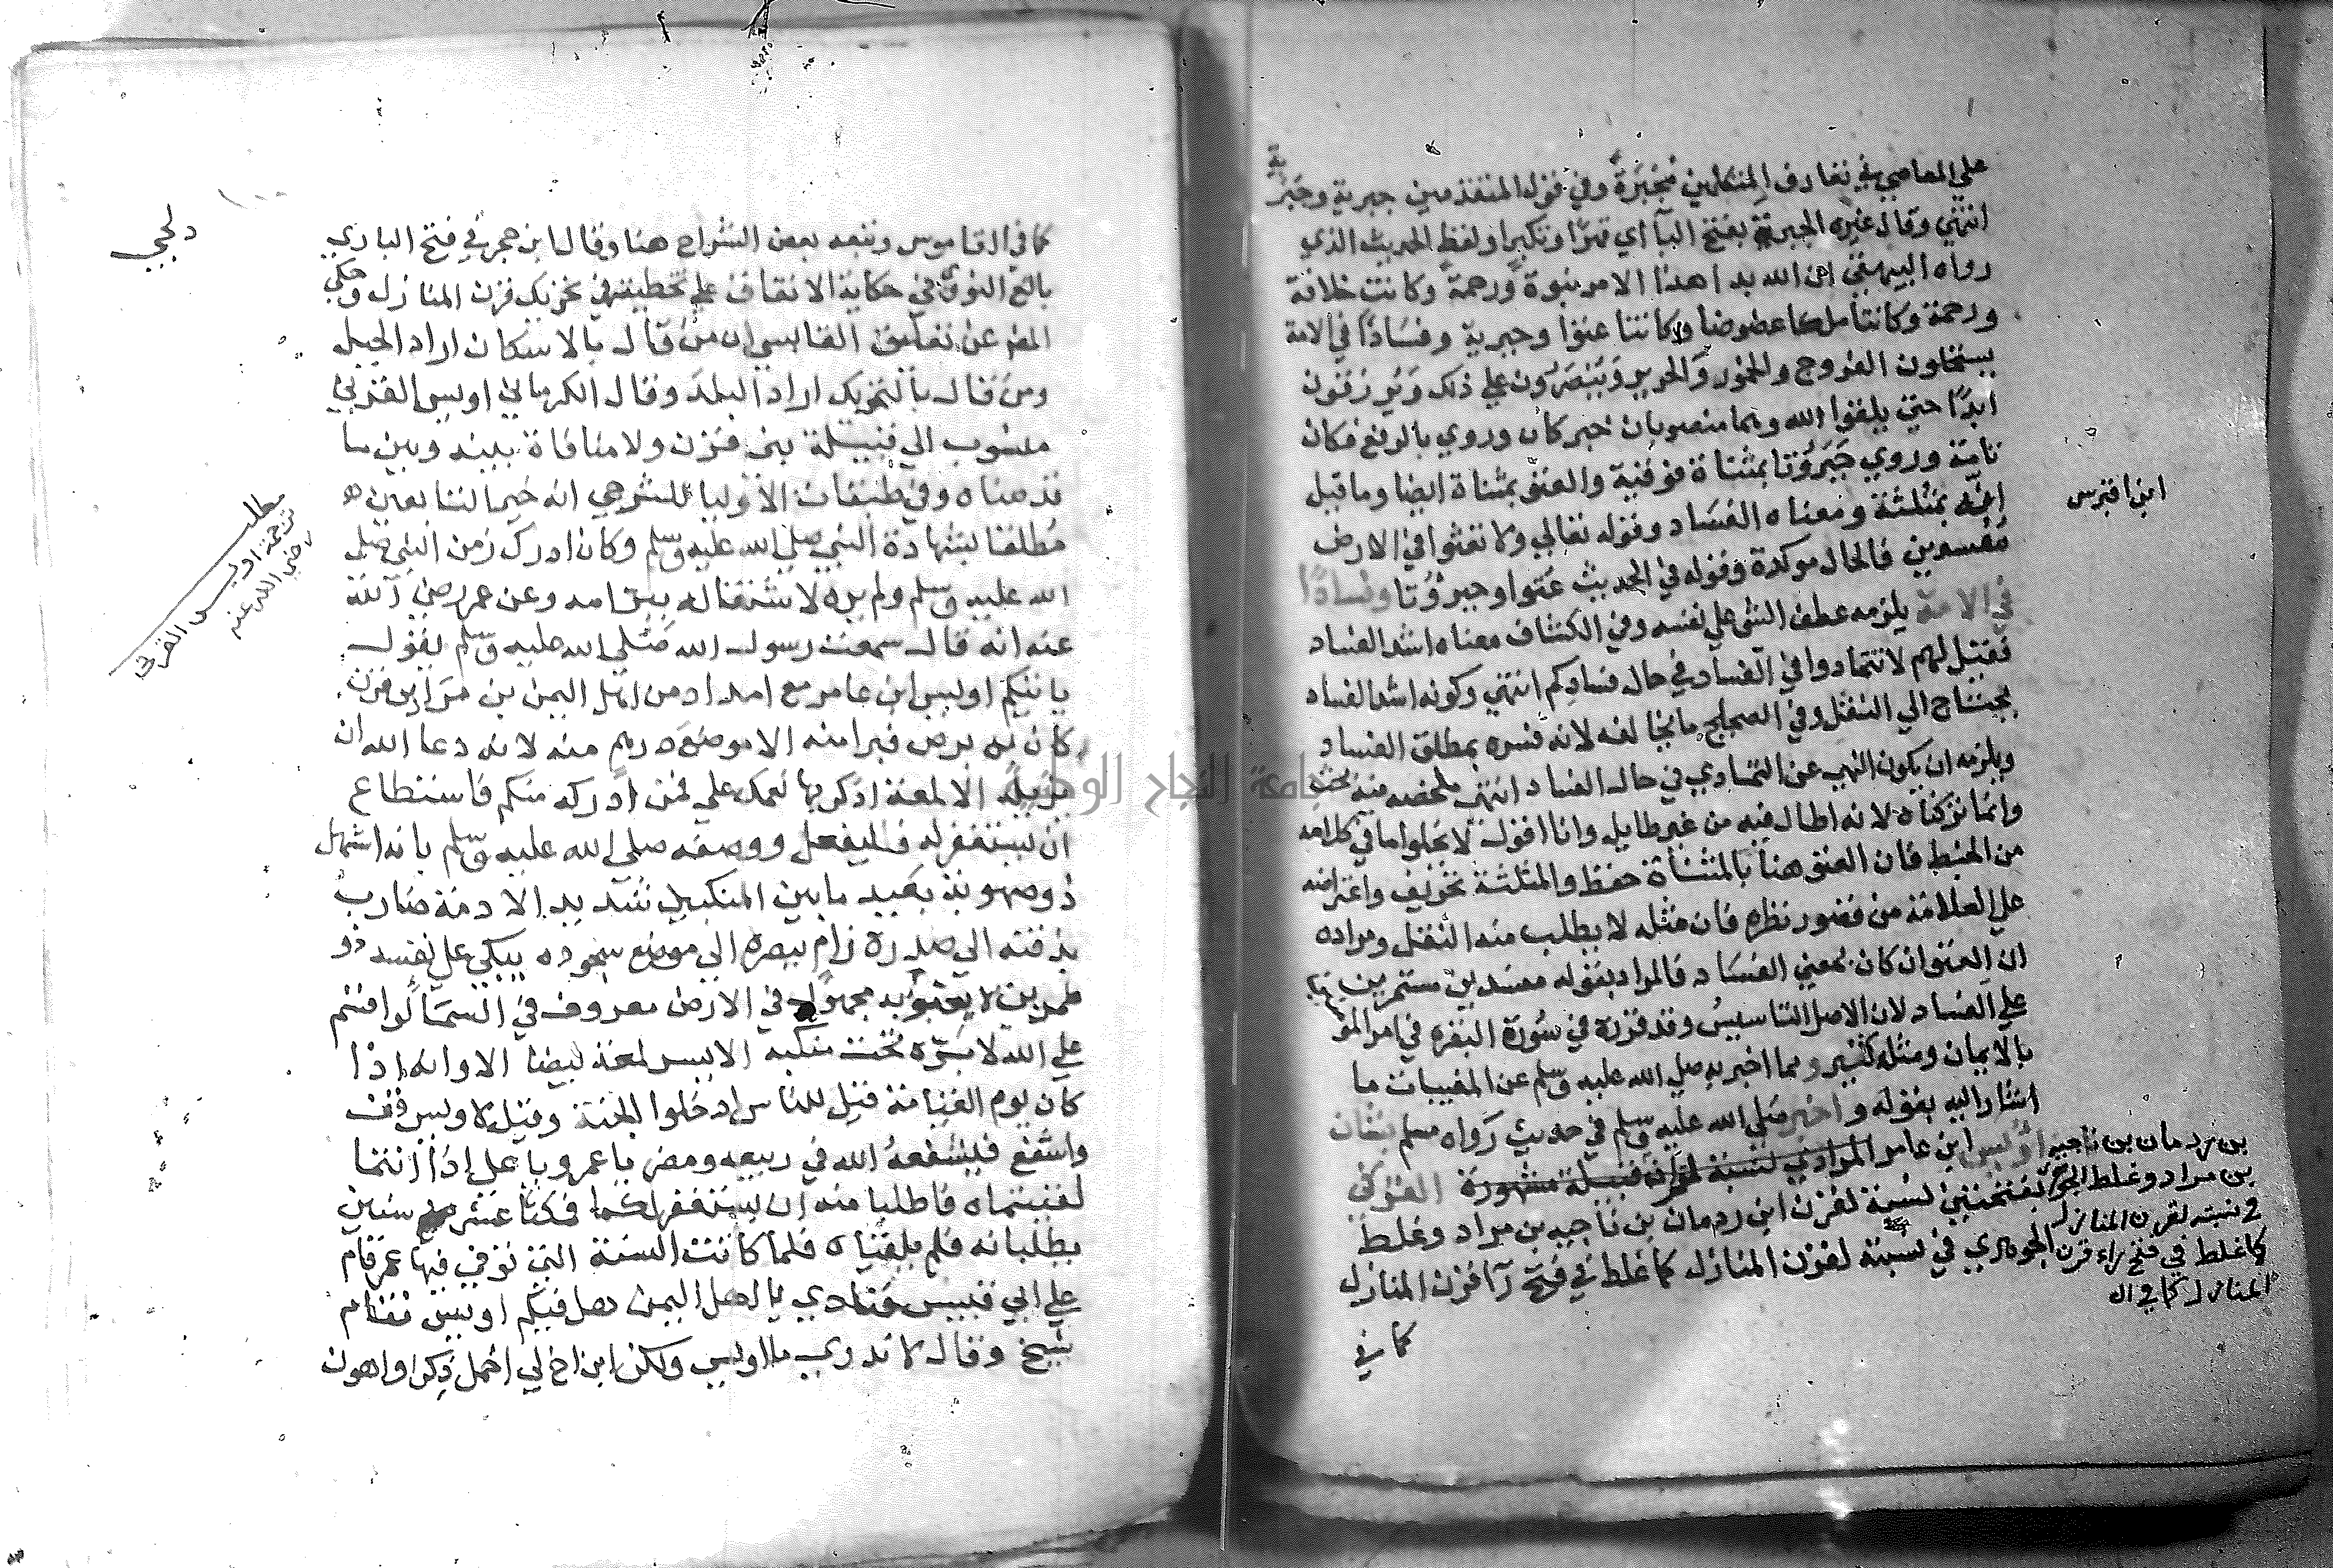 علي المعاصي في تعارف المتكلمين مجبرة وفي قول المتقدمين جبرية وجبرية
انتهي وقال غيره الجبرية بفتح البا اي قهرا وتكبرا ولفظ الحديث الذي
رواه البيهقي ان الله بدا هذا الامر نبوة ورحمة وكانت خلافة
ورحمة وكانتا ملكا عضوضا وكانتا عتوا وجبرية وفسادا في الامة
يستحلون الفروج والخمور والحرير وينصرون علي ذلك ويرزقون
ابدا حتي يلقوا الله وهما منصوبان خبر كان وروي بالرفع فكان
تامة وروي جبروتا بمثناة فوقية والعتو بمثناة ايضا وما قيل
انه بمثلثة ومعناه الفساد وقوله تعالي ولا تعثوا في الارض
مفسدين فالحال موكدة وقوله في الحديث عتوا وجبروتا وفسادا
في الامة يلزمه عطف الشي علي نفسه وفي الكشاف معناه اشد الفساد
فقيل لهم لا تتمادوا في الفساد في حال فسادكم انتهي وكونه اشد الفساد
يحتاج الي النقل وفي الصحاح ما يخالفه لانه فسره بمطلق الفساد
ويلزمه ان يكون النهي عن التمادي في حال الفساد انتهي ملخصه فيه بحث
وانما تركناه لانه اطال فيه من غير طايل وانا اقول لا يخلوا ما في كلامه
من الخبط فان العتو هنا بالمثناة حفظ والمثلثة تحريف واعتراضه
علي العلامة من قصور نظره فان مثله لا يطلب منه النقل ومراده
ان العتو ان كان بمعني الفساد فالمراد بقوله مفسدين مستمرين
علي الفساد لان الاصل التاسيس وقد قرره في سورة البقره في امر المو
بالايمان ومثله كثير ومما اخبر به صلي الله عليه وسلم عن المغيبات ما
اشار اليه بقوله واخبر صلي الله عليه وسلم في حديث رواه مسلم بشان
اويس ابن عامر المرادي لنسبة لمراد قبيلة مشهورة القرني
بفتحتين نسبة لقرن ابن ردمان بن ناجيه بن مراد وغلط
الجوهري في نسبة لقرن المنازل كما غلط في فتح رآ قرن المنازل
كما في
ابن اقبرس
بن ردمان بن ناجيه
بن مراد وغلط الجوهري
في نسبته لقرن المنازل
كما غلط في فتح راء قرن
المنازل كما في ال
كما في القاموس وتبعه بعض الشراح هنا وقال ابن حجر في فتح الباري
بالغ النووي في حكاية الاتفاق علي تخطيته في تحريك قرن المنازل وحكي
عن تعليق القابسي ان من قال بالاسكان اراد الجبل
ومن قال بالتحريك اراد البلد وقال الكرماني اويس القرني
منسوب الي قبيلة بني قرن ولا منافاة بينه وبين ما
قدمناه وفي طبقات الاوليا للشرجي انه خير التابعين
مطلقا بشهادة النبي صلي الله عليه وسلم وكان ادرك زمن النبي صلي
الله عليه وسلم ولم يره لاشتغاله بامه وعن عمر رضي الله
عنه انه قال سمعت رسول الله صلي الله عليه وسلم يقول
ياتيكم اويس ابن عامر مع امداد من اهل اليمن من مراد من قرن
كان به برص فبرا منه الا موضع درهم منه لانه دعا الله ان
يزيله الا لمعة اذكر بها نعمك علي فمن ادركه منكم فاستطاع
ان يستغفر له فليفعل ووصفه صلي الله عليه وسلم بانه اشهل
ذو صهوبة بعيد ما بين المنكبين شديد الادمة ضارب
بذقنه الي صدره رام ببصره الي موضع سجوده يبكي علي نفسه ذو
طمرين لا يعبو به مجهول في الارض معروف في السما لو اقسم
علي الله لابره تحت منكبه الايسر لمعة بيضا الا وانه اذا
كان يوم القيامة قيل للناس ادخلوا الجنة وقيل لاويس قف
واشفع فيشفعه الله في ربيعه ومضر يا عمر ويا علي اذا انتما
لقيتماه فاطلبا منه ان يستغفر لكما فمكثا عشر سنين
يطلبانه فلم يلقياه فلما كانت السنة التي توفي فيها عمر قام
علي ابي قبيس فنادي يا اهل اليمن هل فيكم اويس فقام
شيخ وقال لا ندري ما اويس ولكن ابن اخ لي اخمل ذكرا واهون
دلجي
مطلب
ترجمة اويس القرني
رضي الله عنه
جامعة النجاح الوطنية